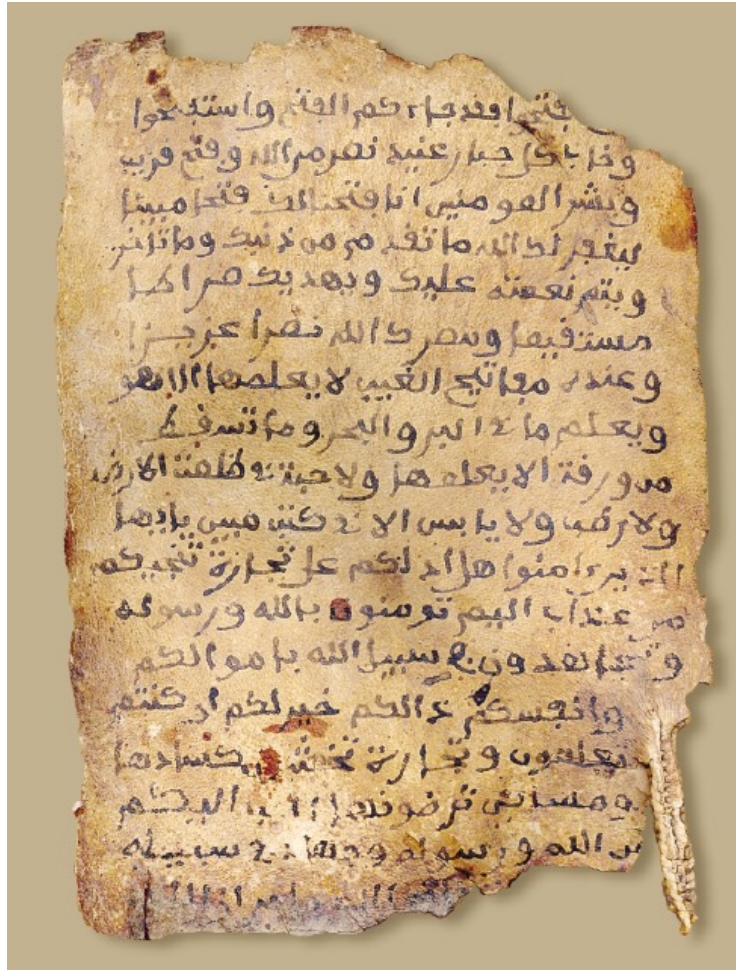 فتحوا فقد جاءكم الفتح واستفتحوا
وخاب كل جبار عنيد نصر من الله وفتح قريب
وبشر المومنين انا فتحنا لك فتحا مبينا
ليغفر لك الله ما تقدم من ذنبك وما تاخر
ويتم نعمته عليك ويهديك صراطا
مستقيما وينصرك الله نصرا عزيزا
وعنده مفاتيح الغيب لا يعلمها الا هو
ويعلم ما في البر والبحر وما تسقط
من ورقة الا يعلمها ولا حبة في ظلمت الارض
ولا رطب ولا يابس الا في كتب مبين يايها
الذين ءامنوا هل ادلكم على تجارة تنجيكم
من عذاب اليم تومنون بالله ورسوله
وتجاهدون في سبيل الله باموالكم
وانفسكم ذالكم خير لكم ان كنتم
تعلمون وتجارة تخشون كسادها
ومساكن ترضونها اليكم
من الله ورسوله وجهاد في سبيله